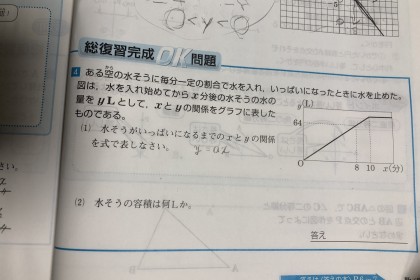 総復習完成OK問題
4 ある空の水そうに毎分一定の割合で水を入れ、いっぱいになったときに水を止めた。
図は、水を入れ始めてからx分後の水そうの水の
量をyLとして、xとyの関係をグラフに表した
ものである。
(1) 水そうがいっぱいになるまでのxとyの関係
を式で表しなさい。
y(L)
64
O
8 10 x(分)
(2) 水そうの容積は何Lか。
答え
A
B